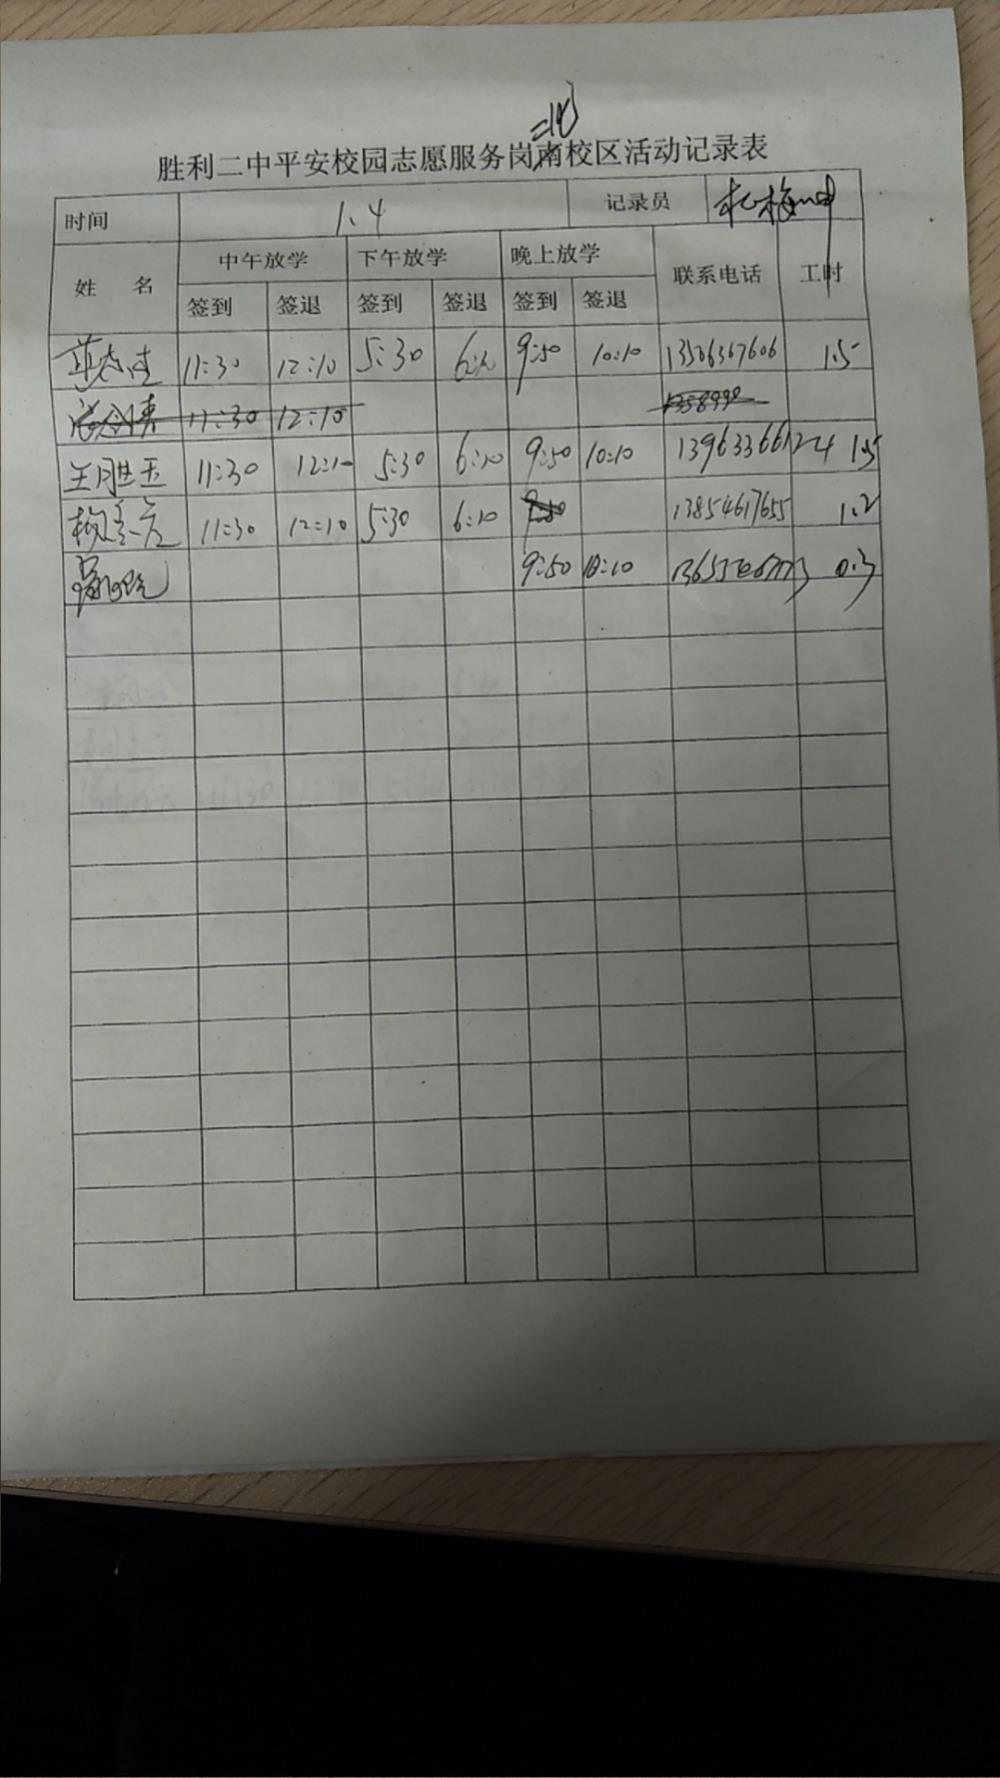 北
胜利二中平安校园志愿服务岗南校区活动记录表
时间 1.4 记录员
姓 名 中午放学 下午放学 晚上放学 联系电话 工时
签到 签退 签到 签退 签到 签退
11:30 12:10 5:30 6:10 9:50 10:10 13506367606 1.5
11:30 12:10
王胜玉 11:30 12:10 5:30 6:10 9:50 10:10 13963366124 1.5
11:30 12:10 5:30 6:10 9:50 13854617655 1.2
9:50 10:10 0.3